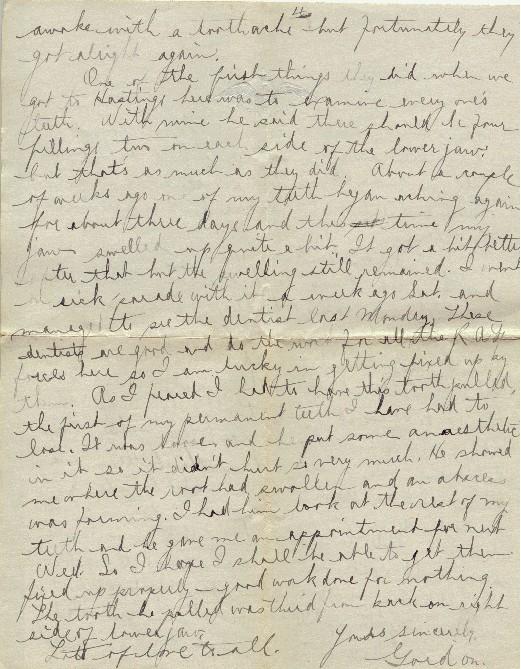 4
awoke with a toothache but fortunately they
got alright again.
One of the first things they did when we
got to Hastings here was to examine every one's
teeth. With mine he said there should be four
fillings two on each side of the lower jaw.
but that's as much as they did. About a couple
of weeks ago one of my teeth began aching again
for about three days and this time my
jaw swelled up quite a bit. It got a bit better
after that but the swelling still remained. I went
on sick parade with it a week ago Sat. and
managed to see the dentist last Monday. These
dentists are good and do the work for all the R.A.F.
forces here so I am lucky in getting fixed up by
them. As I feared I had to have this tooth pulled,
the first of my permanent teeth I have had to
lose. It was and he put some anaesthetic
in it so it didn't hurt so very much. He showed
me where the root had swollen and an abscess
was forming. I had him look at the rest of my
teeth and he gave me an appointment for next
Wed. So I hope I shall be able to get them
fixed up properly - good work done for nothing
The tooth he pulled was third from back on right
side of lower jaw.
Lots of love to all. Yours sincerely
Gordon.